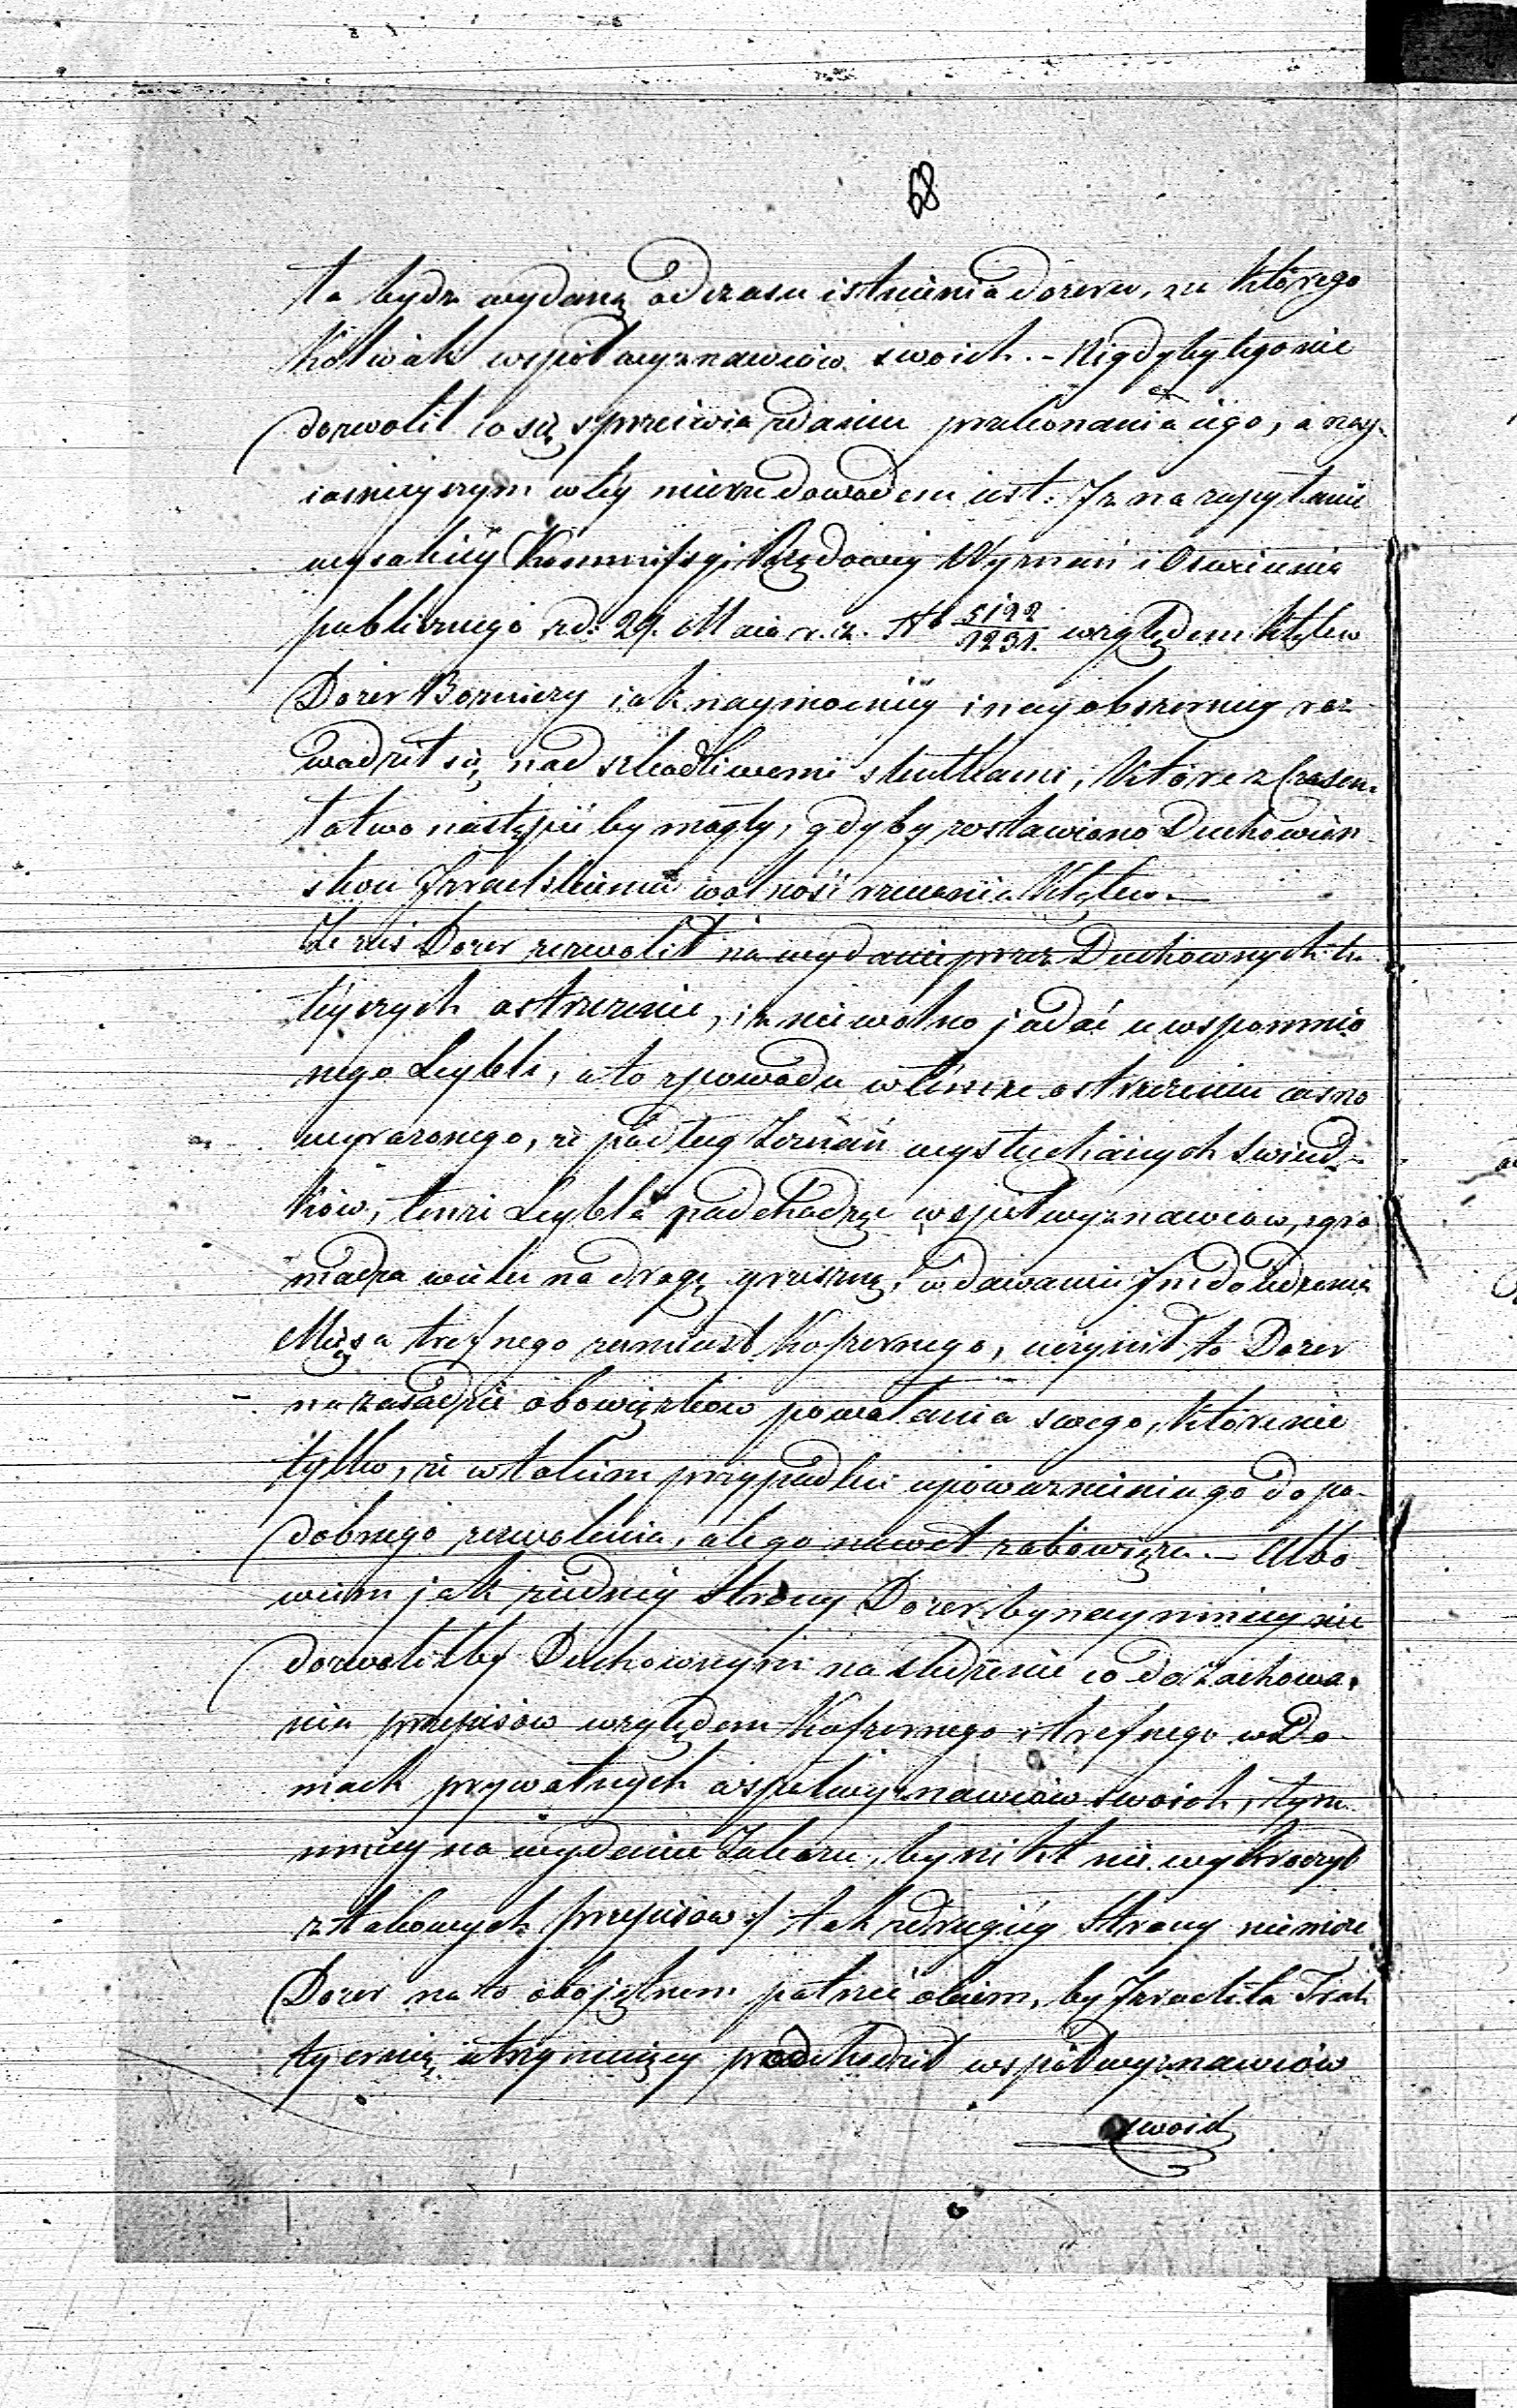 68
ta bydź wydaną od czasu istnienia dozoru, na którego
Kolwiek współwyznawców swoich. – Nigdyby tego nie
dozwolił co się sprzeciwia zdaniu przekonania iego, a nay-
iaśnieyszym w téy mierze dowodem iest. Iż na zapytanie
wysokiéy Kommissyi Rządowéy Wyznań i Oświecenia
publicznego zd: 29. Maia r. z. No 5192/1231. względem Klątew
Dozór Bożniczy iak naymocniéy i nayobszerniéy roz-
wodził się, nad szkodliwemi skutkami, które z Czasem
łatwo nastąpić by mogły, gdyby zostawiono Duchowień-
stwu Izraelskiemu wolność rzucania Klątew. –
Że zaś Dozór zezwolił na wydanie przez Duchownych tu
téyszych ostrzeżenie, iż nie wolno jadać u wspomnio
nego Leybli, a to z powodu w témże ostrzeżeniu iasno
wyrażonego, że podług Zeznań wysłuchanych świad-
ków, tenże Leybla podchodząc współwyznawców, zgro
madza wielu na drogę grzeszną, w dawaniu Im do Jedzenia
Mięsa trefnego zamiast Koszernego, uczynił to Dozór
na zasadzie obowiązków powołania swego, które nie
tylko, że w takim przypadku upoważnienia go do po-
dobnego zezwolenia, ale go nawet zobowiąza. – Albo
wiem jak z iednéy strony Dozór, bynaymniéy nie
dozwoliłby Duchownym na śledzenie co do zachowa-
nia przepisów względem Koszernego i trefnego w Do-
mach prywatnych współwyznawców swoich, tym
mniéy na wydanie Zakazu, by nikt nie wykroczył
z takowych przepisów :/ tak z drugiéy strony nie może
Dozór na to obojętnem patrzeć okiem, by Izraelita Trak
tyernią utrzymuiący podchodził współwyznawców
swoich